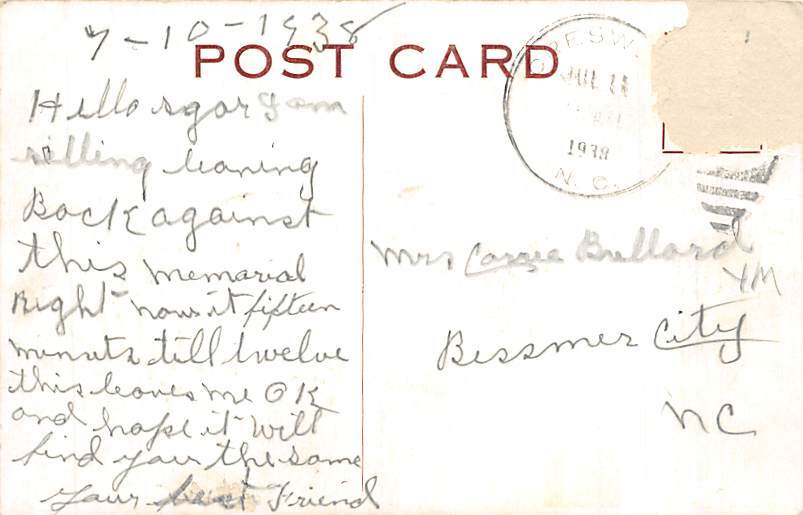 7-10-1938
POST CARD
Hello sgar I am
silling leaning
Back against
this memorial
Right now it fifteen
minuts till twelve
this leaves me OK
and hope it will
find you the same
your best Friend
JUL 11
1938
N. C.
Mrs Carrie Bullard
Bessmer City
NC